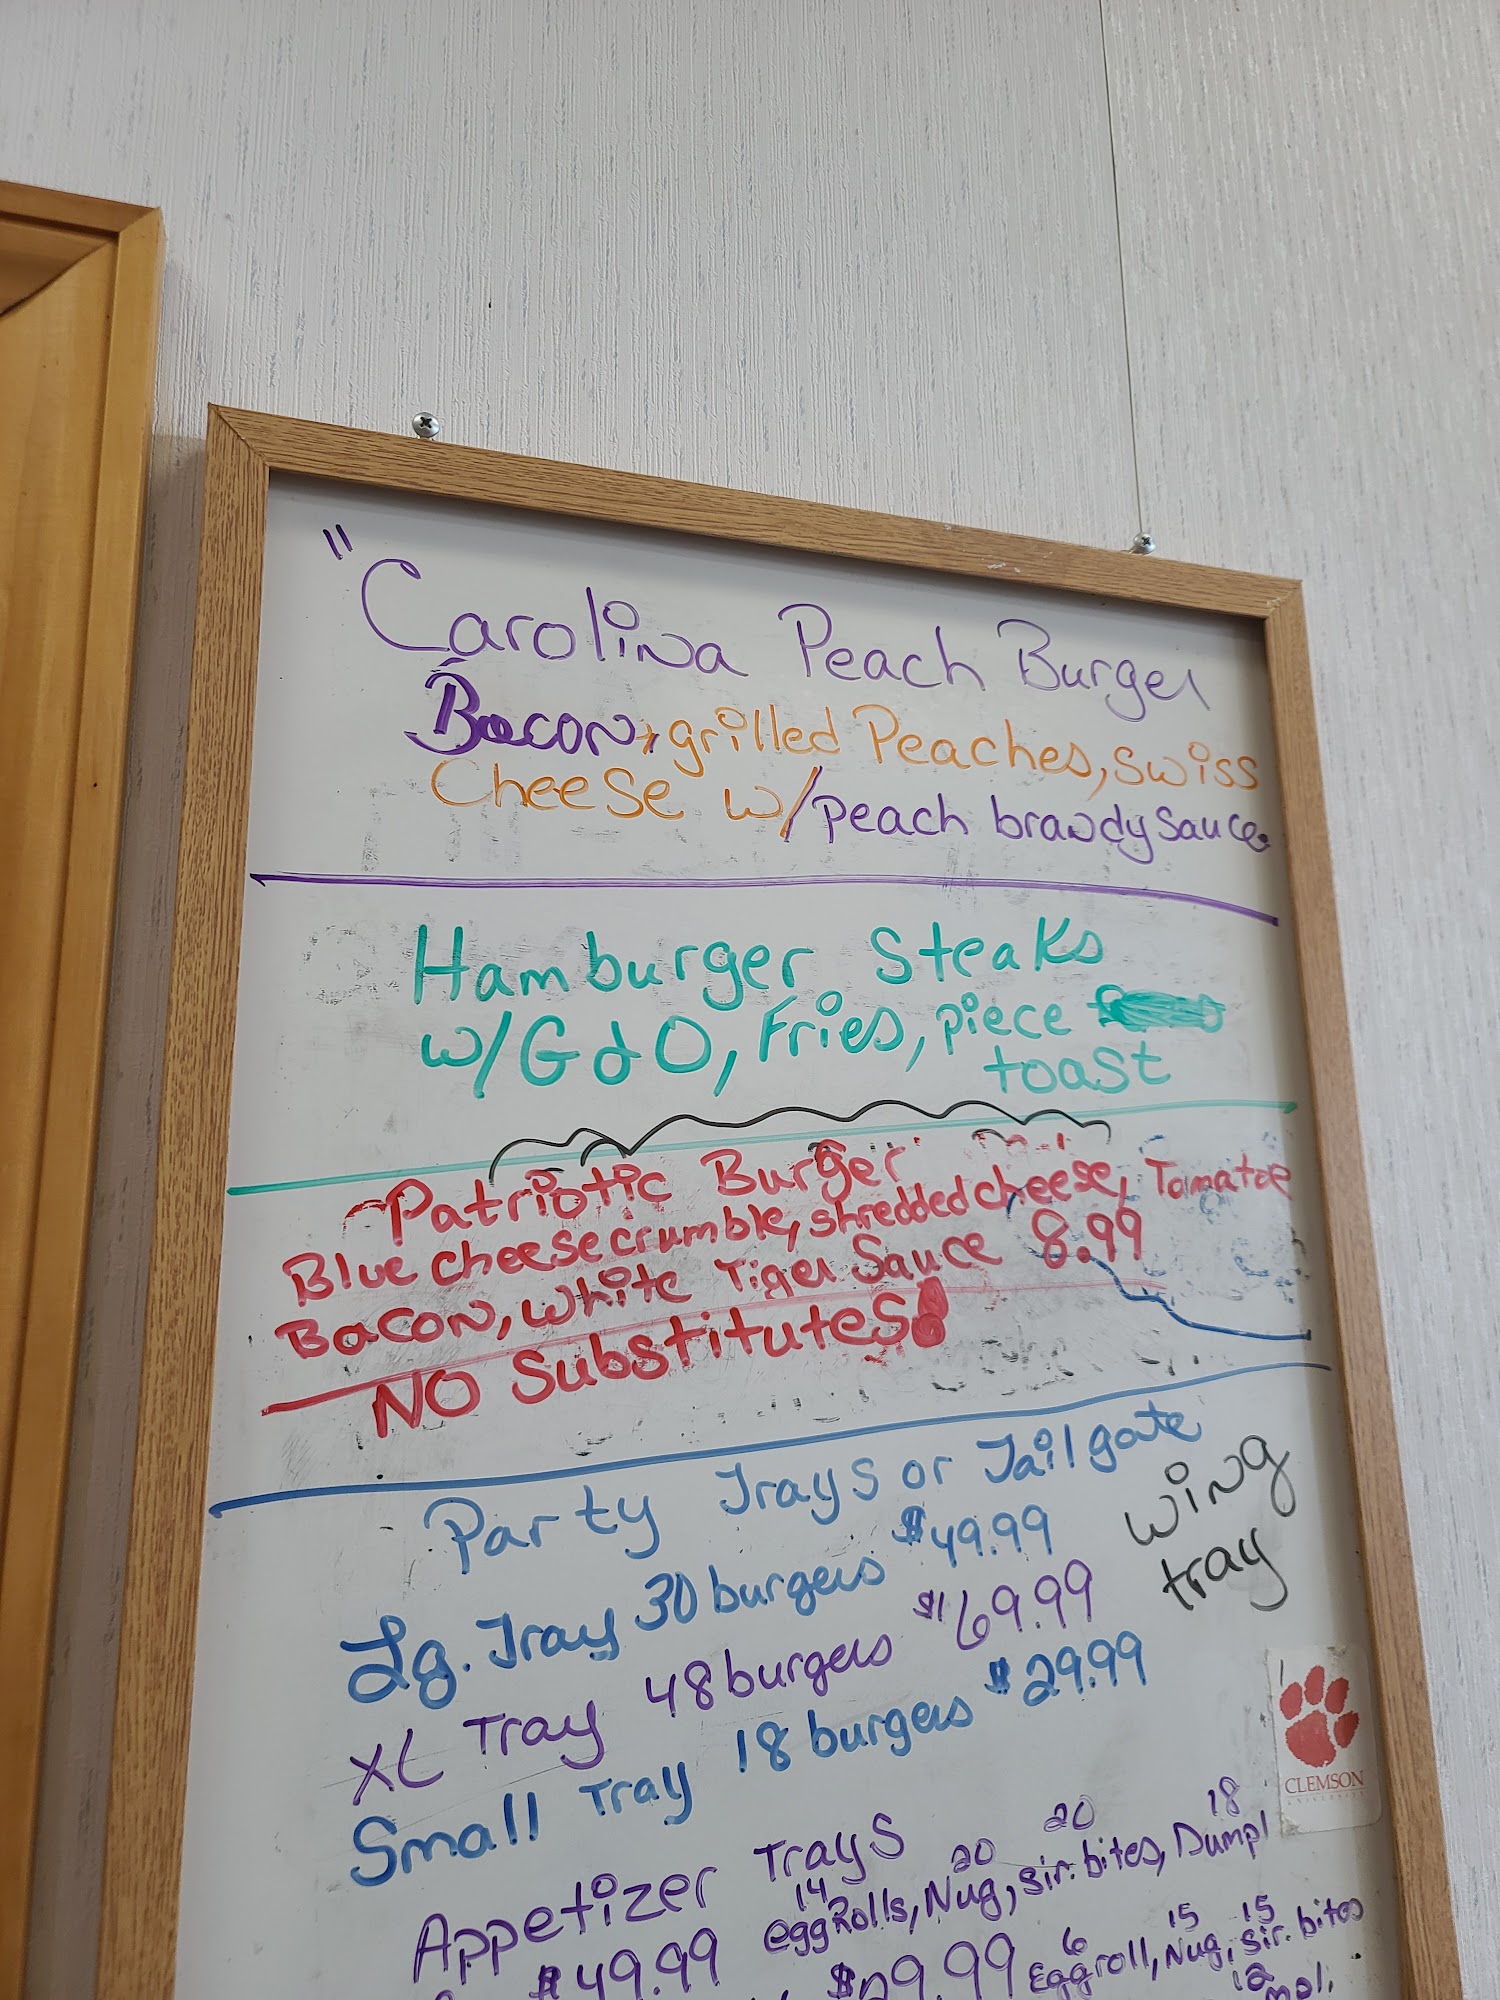 "Carolina Peach Burger
Bacon, grilled Peaches, swiss
Cheese w/peach brandy sauce
Hamburger Steaks
w/G&O, Fries, piece
toast
Patriotic Burger
Blue cheese crumble, shredded cheese, Tomatoe
Bacon, White Tiger Sauce 8.99
NO Substitutes!
Party Trays or Tailgate
Lg. Tray 30 burgers $49.99
XL Tray 48 burgers $69.99
Small Tray 18 burgers $29.99
wing
tray
CLEMSON
UNIVERSITY
Appetizer Trays
14 20 20 18
$49.99 eggRolls, Nug, sir. bites, Dumpl
6 15 15
$29.99 Eggroll, Nug, sir. bites
12